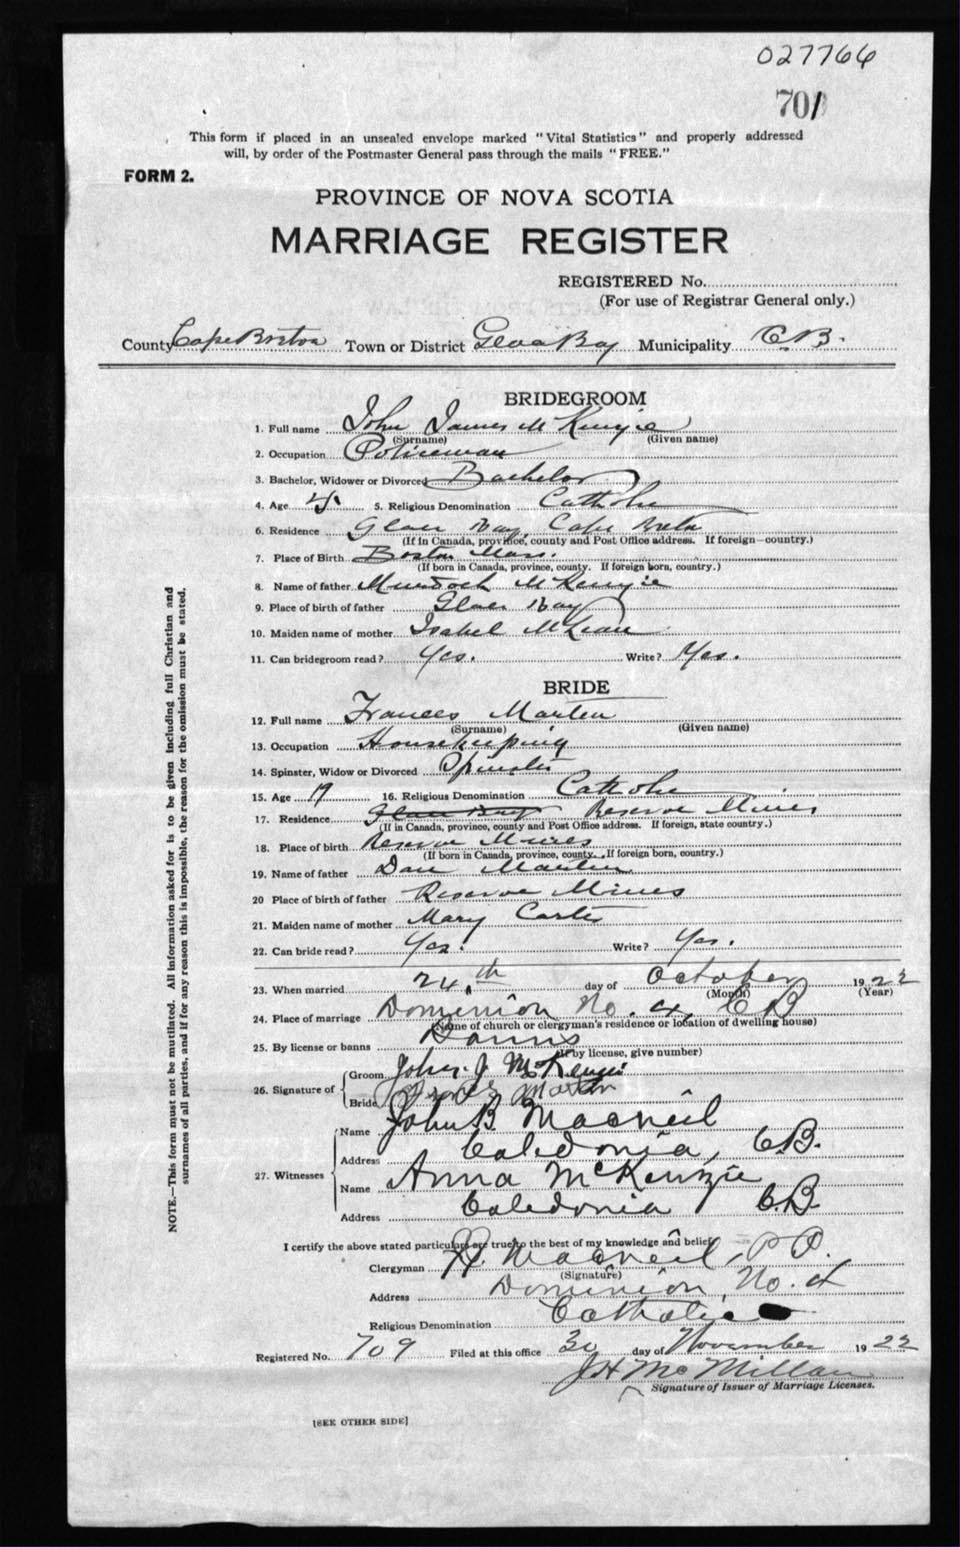 027766
701
This form if placed in an unsealed envelope marked "Vital Statistics" and properly addressed
will, by order of the Postmaster General pass through the mails "FREE."
FORM 2.
PROVINCE OF NOVA SCOTIA
MARRIAGE REGISTER
REGISTERED No.
(For use of Registrar General only.)
County Cape Breton Town or District Glace Bay Municipality C.B.
BRIDEGROOM
1. Full name John James McKenzie
(Surname) (Given name)
2. Occupation Policeman
3. Bachelor, Widower or Divorced Bachelor
4. Age 5. Religious Denomination Catholic
6. Residence Glace Bay, Cape Breton
(If in Canada, province, county and Post Office address. If foreign—country.)
7. Place of Birth Boston Mass.
(If born in Canada, province, county. If foreign born, country.)
8. Name of father Murdoch McKenzie
9. Place of birth of father Glace Bay
10. Maiden name of mother Isabel McLean
11. Can bridegroom read? Yes. Write? Yes.
BRIDE
12. Full name Frances Martin
(Surname) (Given name)
13. Occupation Housekeeping
14. Spinster, Widow or Divorced Spinster
15. Age 19 16. Religious Denomination Catholic
17. Residence Glace Bay Reserve Mines
(If in Canada, province, county and Post Office address. If foreign, state country.)
18. Place of birth Reserve Mines
(If born in Canada, province, county. If foreign born, country.)
19. Name of father Dan Martin
20 Place of birth of father Reserve Mines
21. Maiden name of mother Mary Carter
22. Can bride read? Yes. Write? Yes.
23. When married 24th day of October 1922
(Month) (Year)
24. Place of marriage Dominion No. 4, C B
(Name of church or clergyman's residence or location of dwelling house)
25. By license or banns Banns
(If by license, give number)
26. Signature of Groom John J McKenzie
Bride Frances Martin
27. Witnesses Name John B. Macneil
Address Caledonia, C.B.
Name Anna McKenzie
Address Caledonia C.B.
I certify the above stated particulars are true to the best of my knowledge and belief.
Clergyman Macneil, P.P.
(Signature)
Address Dominion, No. 4
Religious Denomination Catholic
Registered No. 709 Filed at this office 30 day of November 1922
J H McMillan
Signature of Issuer of Marriage Licenses.
[SEE OTHER SIDE]
NOTE.—This form must not be mutilated. All information asked for is to be given including full Christian and
surnames of all parties, and if for any reason this is impossible, the reason for the omission must be stated.